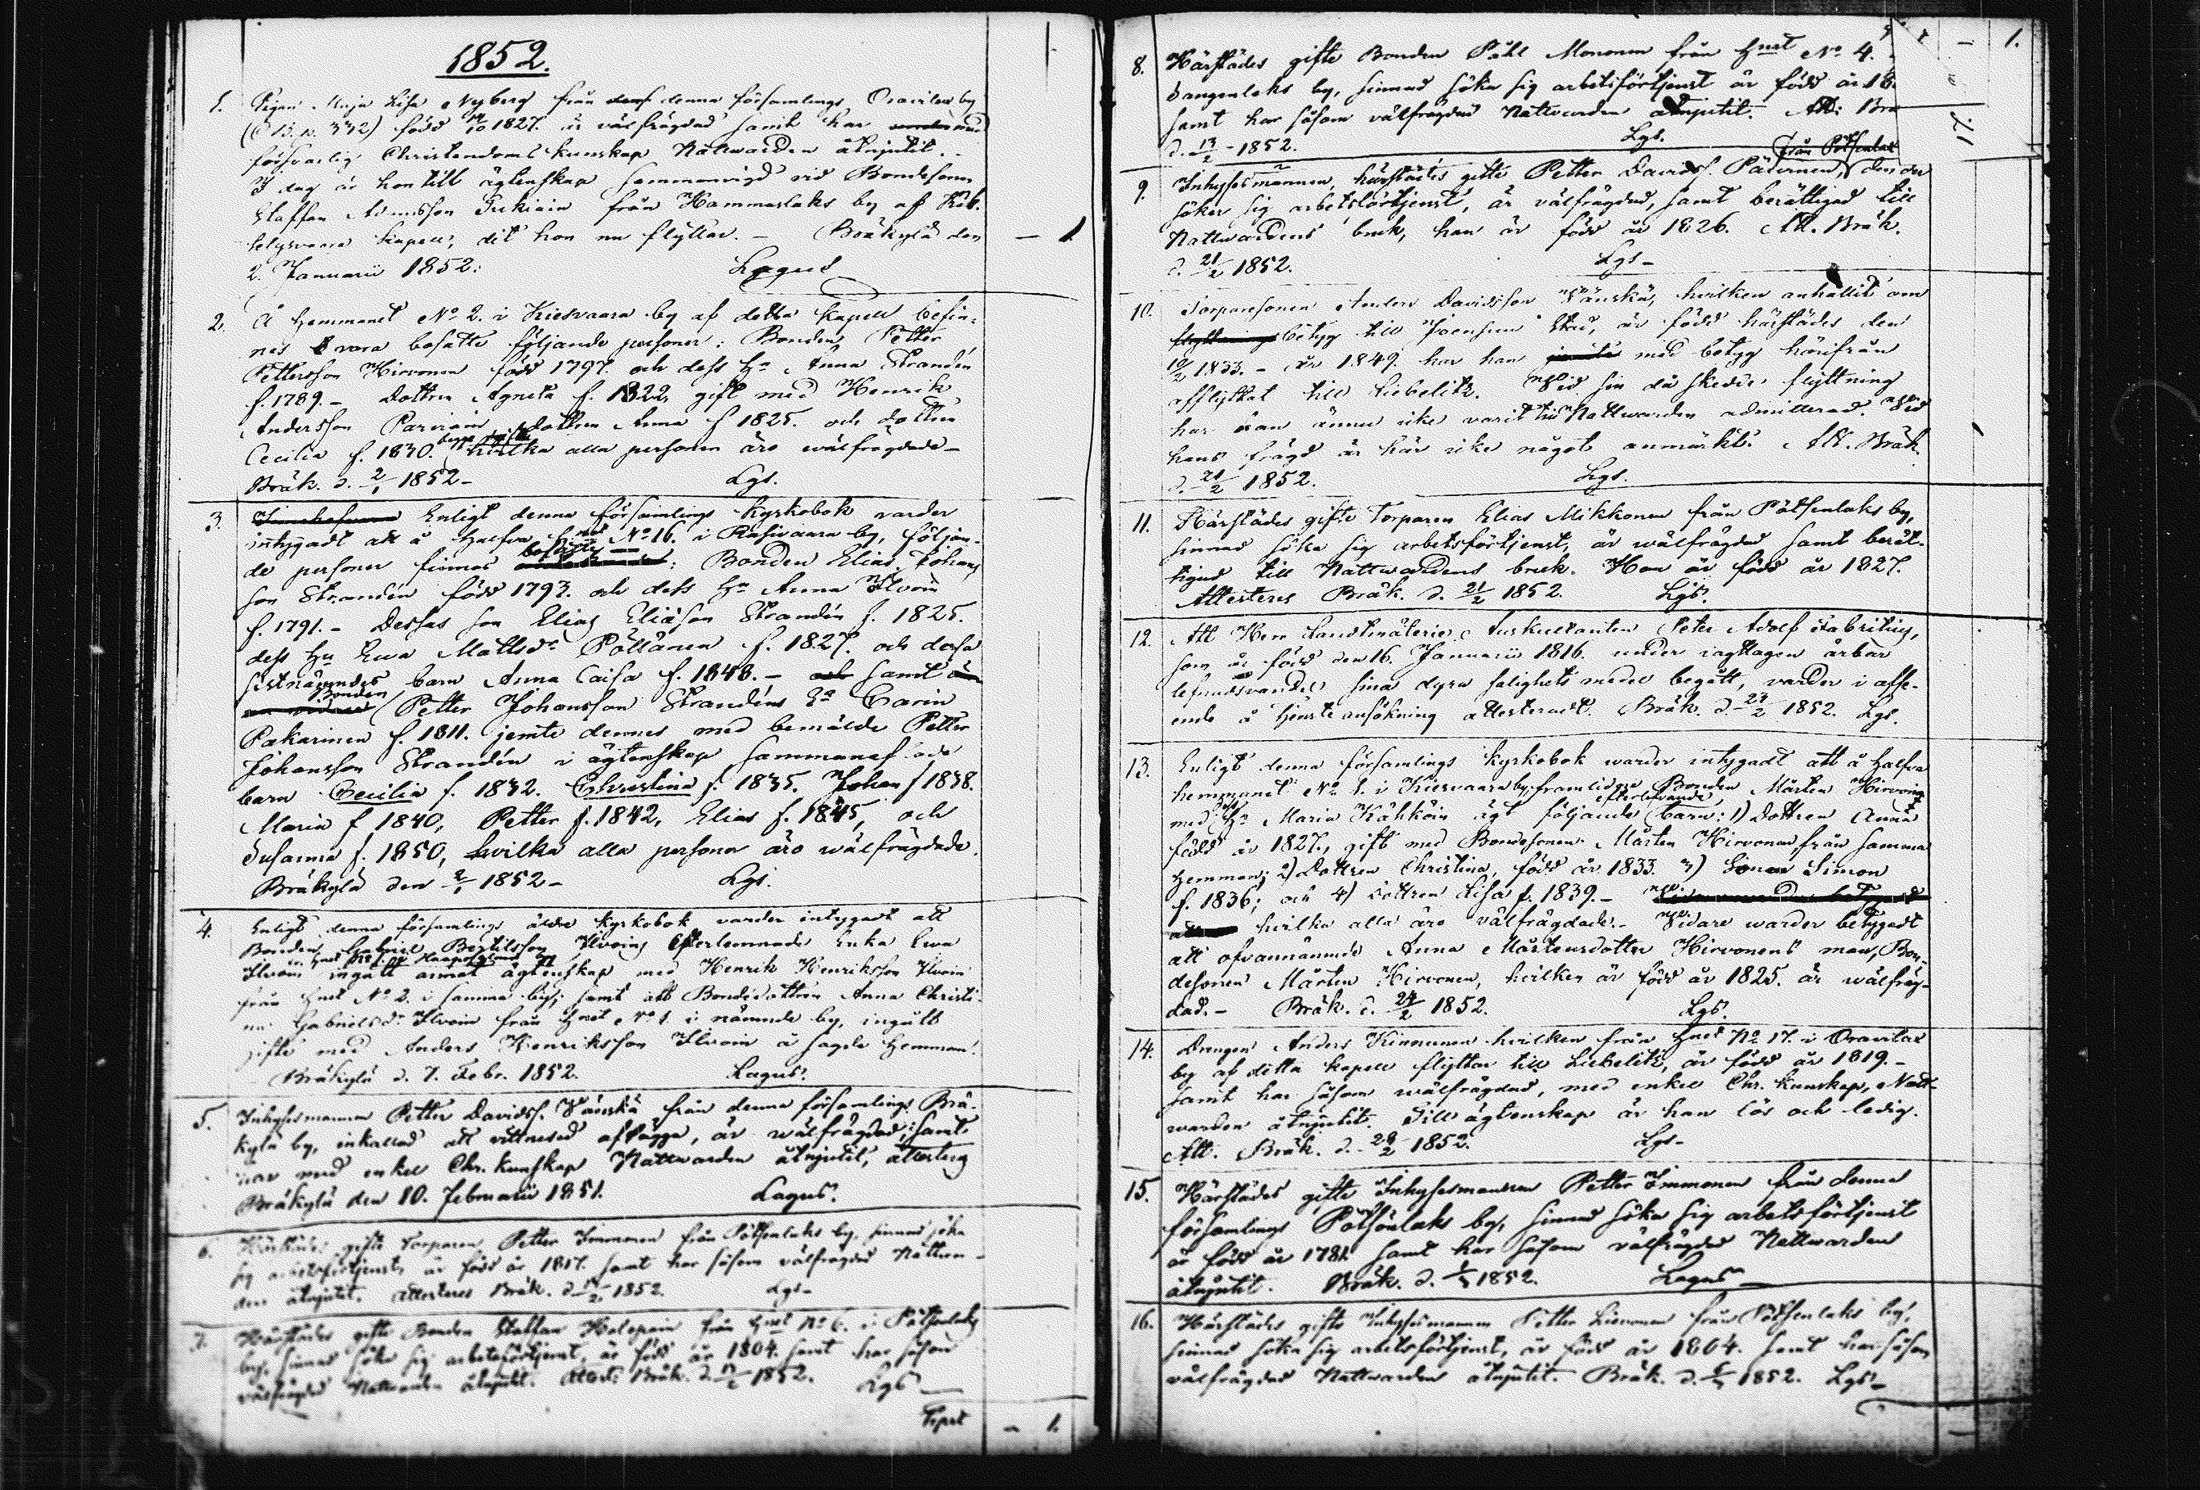 1852.
1. Pigan Maja Lisa Nyberg från denna församlings Oravilax by
(C.B. p. 332) född 14/10 1827. är välfrägdad samt har med
försvarlig Christendoms kunskap Nattwarden åtnjutit.
I dag är hon till ägtenskap sammanvigd vid Bondesonen
Staffan från Hammaslaks by af Kid-
helysvaara kapell, dit hon nu flyttar. — Bräkylä den — 1.
2. Januarii 1852. Lagus
2. Å hemmanet No 2. i Kiesvaara by af detta kapell befin-
nes vara bosatte följande personer: Bonden Petter
Pettersson Hirvonen född 1797. och dess Hu Anna Strandin
f. 1789. — Dottren Agneta f. 1822, gift med Henrik
Andersson Parviain, dottren Anna f 1825. och dottren
Cecilia f. 1830. hvilka alla personer äro wälfrägdade —
Bräk. d. 2/1 1852 — Lgs.
3. Enligt denna församlings kyrkobok varder
intygadt att å halfva Hmt No 16. i Rasivaara by, följan-
de personer finnas bosatte: Bonden Elias Johans
son Strandén född 1793. och dess Hu Anna Ilvoin
f. 1791. — Dessas son Elias Eliasson Strandén f. 1825.
dess Hu Ewa Mattsdr Pöllänen f. 1827. och dessa
sistnämndes barn Anna Caisa f. 1848. — och samt
Bonden Petter Johansson Strandéns Ea Carin
Pakarinen f. 1811. jemte dennes med bemälde Petter
Johansson Strandén i ägtenskap sammanaflade
barn Cecilia f. 1832. Christina f. 1835, Johan f 1838.
Maria f 1840, Petter f. 1842, Elias f. 1845, och
Susanna f. 1850, hvilka alla personer äro wälfrägdade.
Bräkylä den 2/1 1852 — Lgs.
4. Enligt denna församlings äldre kyrkobok varder intygadt att
Bonden Gabriel Bertilsson Ilvoins efterlemnade Enka Ewa
Ilvoin ingått annat ägtenskap med Henrik Henriksson Ilvoin
från Hmt No 2. i samma by, samt att Bondedottren Anna Christi-
na Gabrielsdr Ilvoin från Hmt No 1 i nämnde by, ingått
gifte med Anders Henriksson Ilvoin å sagde hemman.
Bräkylä d. 7. Febr. 1852. Lagus.
5. Inhysesmannen Petter Davidss. Vänskä från denna församlings Brä-
kylä by, inkallad att vittnesed aflägga, är wälfrägdad, samt
har med enkel Chr. kunskap Nattwarden åtnjutit, attesteras
Bräkylä den 10. Februarii 1851. Lagus.
6. Härstädes gifte Torparen Petter Immonen från Pötsenlaks by, sinnad söka
sig arbetsförtjenst, är född år 1817. samt har såsom välfrägdad Nattwar-
den åtnjutit. Attesteres Bräk. d. 1852. Lgs —
7. Härstädes gifte Bonden Staffan Halopain från Hmt No 6. i Pötsenlaks
by, sinnad söka sig arbetsförtjenst, är född år 1804. samt har såsom
välfrägdad Nattwarden åtnjutit. Attest. Bräk. d. 1852. Lgs —
Trprt — 1.
8. Härstädes gifte Bonden Påhl Mononen från Hmt No 4.
Vangenlaks by, sinnad söka sig arbetsförtjenst är född år 18
samt har såsom välfrägdad Nattwarden åtnjutit. Att. Brä
d. 13/2 — 1852. Lgs.
9. Inhysesmannen, härstädes gifte Petter Davidss. Päivinen, från Pötsenlax den der
söker sig arbetsförtjenst, är välfrägdad, samt berättigad till
Nattwardens bruk, han är född år 1826. Att. Bräk.
d. 21/2 1852. Lgs —
10. Torparesonen Anders Davidsson Vänskä, hvilken anhållit om
betyg till Joensuu Stad, är född härstädes den
10/2 1833. — År 1849. har han med betyg härifrån
afflyttat till Liebelitz. Vid sin då skedda flyttning
har han ännu icke varit till Nattwarden admitterad. Vid
hans frägd är här icke något anmärkt. Att. Bräk.
d. 21/2 1852. Lgs.
11. Härstädes gifte Torparen Elias Mikkonen från Pötsenlaks by,
sinnad söka sig arbetsförtjenst, är wälfrägdad samt berät-
tigad till Nattwardens bruk. Han är född år 1827.
Attesteres Bräk. d. 21/2 1852. Lgs.
12. Att Herr Landtmäterie Auskultanten Peter Adolf Fabritius,
som är född den 16. Januarii 1816. under iagttagen ärbar
lefnadsvandel sina dyra salighets medel begått, varder i afse-
ende å tjensteansökning attesteradt. Bräk. d. 23/2 1852. Lgs.
13. Enligt denna församlings kyrkobok warder intygadt att å halfva
hemmanet No 1. i Kiesvaara by, framlidne Bonden Mårten Hirvoinen
med dess Hu Maria Kähköin ägt följande efterlefvande barn: 1) Dottren Anna
född år 1827., gift med Bondesonen Mårten Hirvonen, från samma
hemman; 2) Dottren Christina, född år 1833. 3) Sonen Simon
f. 1836; och 4) Dottren Lisa f. 1839. —
hvilka alla äro välfrägdade. — Vidare warder betygadt
att ofvannämnde Anna Mårtensdotter Hirvonens man, Bon-
desonen Mårten Hirvonen, hvilken är född år 1825. är wälfräg-
dad. — Bräk. d. 24/2 1852. Lgs.
14. Drengen Anders Kinnunen hvilken från Hmt No 17. i Oravilax
by af detta kapell flyttar till Liebelitz, är född år 1819. —
samt har såsom wälfrägdad, med enkel Chr. kunskap, Natt-
warden åtnjutit. Till ägtenskap är han lös och ledig.
Att. Bräk. d. 28/2 1852. Lgs —
15. Härstädes gifte Inhysesmannen Petter Immonen från denna
församlings Pötsönlaks by, sinnad söka sig arbetsförtjenst
är född år 1781. samt har såsom välfrägdad Nattwarden
åtnjutit. Bräk. d. 1852. Lagus
16. Härstädes gifte Inhysesmannen Petter från Pötsenlaks by,
sinnad söka sig arbetsförtjenst, är född år 1804. samt har såsom
wälfrägdad Nattwarden åtnjutit. Bräk. d. 1852. Lgs —